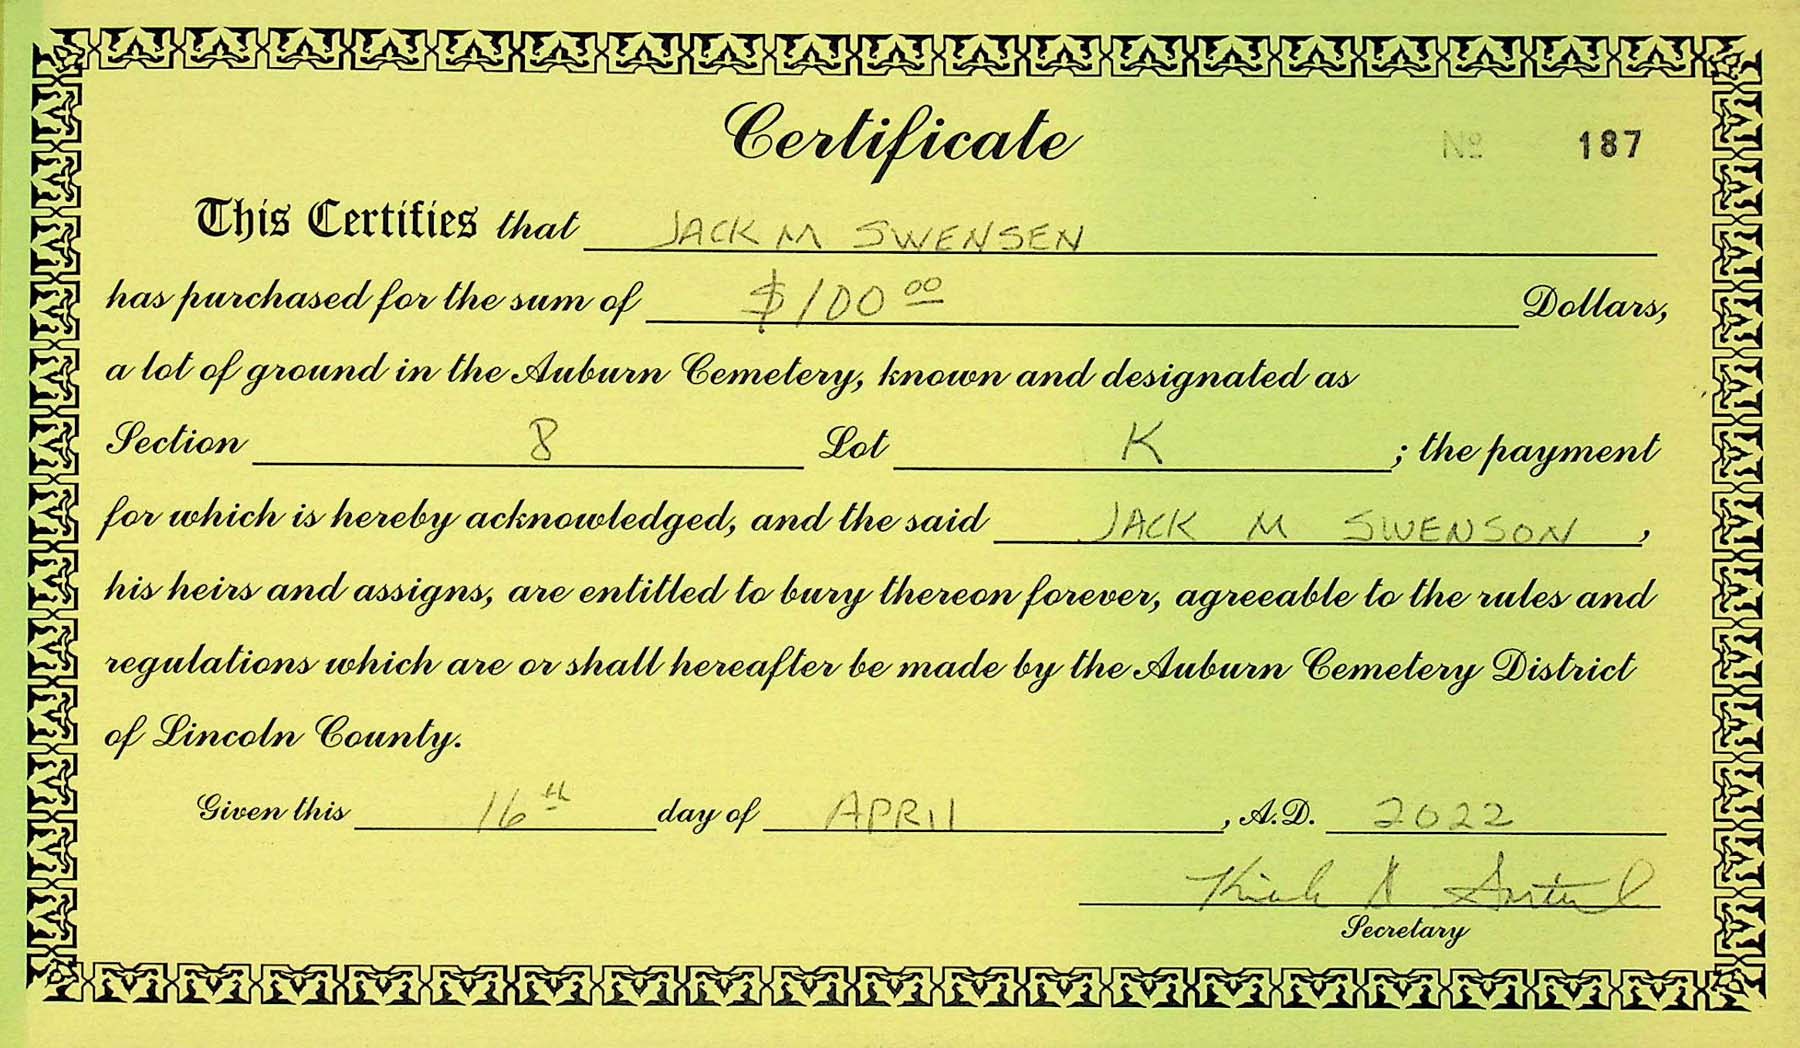 Certificate
No 187
This Certifies that JACK M SWENSEN
has purchased for the sum of $100 00 Dollars,
a lot of ground in the Auburn Cemetery, known and designated as
Section 8 Lot K ; the payment
for which is hereby acknowledged, and the said JACK M SWENSON,
his heirs and assigns, are entitled to bury thereon forever, agreeable to the rules and
regulations which are or shall hereafter be made by the Auburn Cemetery District
of Lincoln County.
Given this 16th day of APRIL, A.D. 2022
Secretary